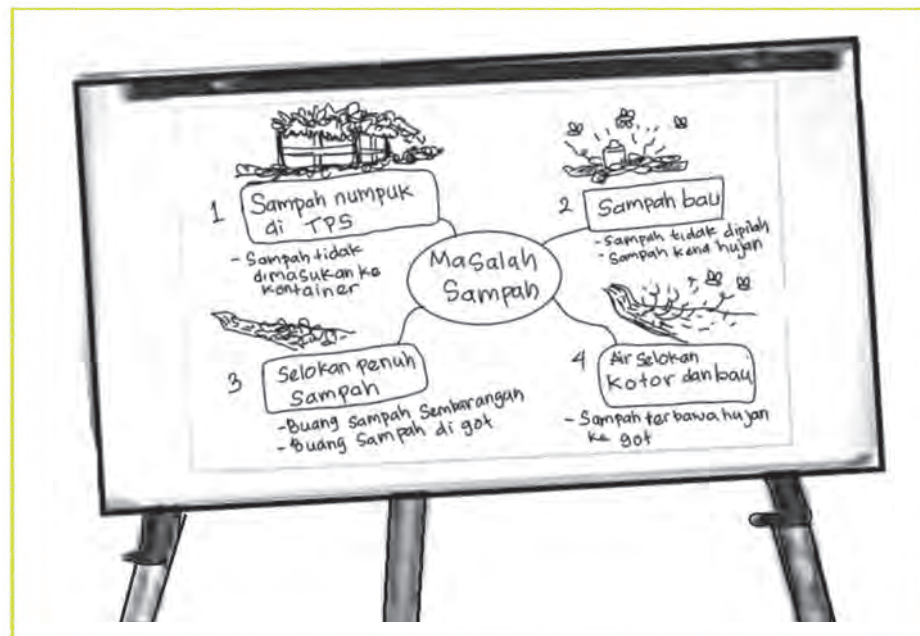 Masalah
Sampah
1
Sampah numpuk
di TPS
- Sampah tidak
dimasukan ke
kontainer
2
Sampah bau
- Sampah tidak dipilah
- Sampah kena hujan
3
Selokan penuh
Sampah
- Buang sampah sembarangan
- Buang sampah di got
4
Air selokan
kotor dan bau
- Sampah terbawa hujan
ke got